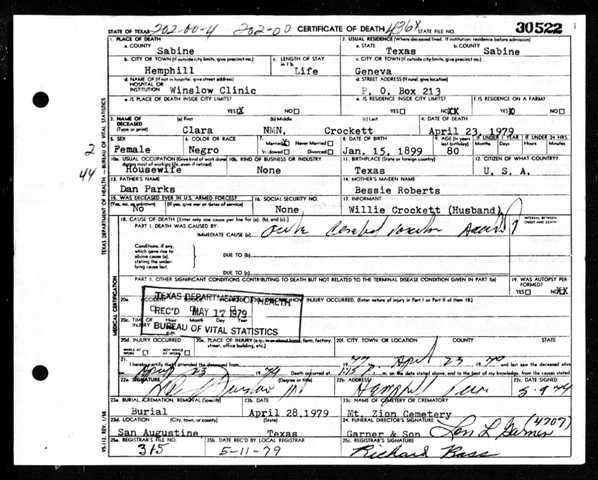 STATE OF TEXAS 202-00-4 202-00 CERTIFICATE OF DEATH 436X STATE FILE NO. 30522
1. PLACE OF DEATH 2. USUAL RESIDENCE (Where deceased lived. If institution: residence before admission)
a. COUNTY Sabine a. STATE Texas b. COUNTY Sabine
b. CITY OR TOWN (If outside city limits, give precinct no.) Hemphill c. LENGTH OF STAY in 1 b. Life c. CITY OR TOWN (If outside city limits, give precinct no.) Geneva
d. NAME OF (If not in hospital, give street address) HOSPITAL OR INSTITUTION Winslow Clinic d. STREET ADDRESS (If rural, give location) P. O. Box 213
e. IS PLACE OF DEATH INSIDE CITY LIMITS? YES X NO e. IS RESIDENCE INSIDE CITY LIMITS? YES NO XX f. IS RESIDENCE ON A FARM? YES NO X
3. NAME OF DECEASED (Type or print) (a) First Clara (b) Middle NMN, (c) Last Crockett 4. DATE OF DEATH April 23, 1979
5. SEX Female 6. COLOR OR RACE Negro 7. Married X Never Married Widowed Divorced 8. DATE OF BIRTH Jan, 15, 1899 9. AGE (In years last birthday) 80 IF UNDER 1 YEAR Months Days IF UNDER 24 HRS. Hours Min.
10a. USUAL OCCUPATION (Give kind of work done during most of working life, even if retired) Housewife 10b. KIND OF BUSINESS OR INDUSTRY None 11. BIRTHPLACE (State or foreign country) Texas 12. CITIZEN OF WHAT COUNTRY? U. S. A.
13. FATHER'S NAME Dan Parks 14. MOTHER'S MAIDEN NAME Bessie Roberts
15. WAS DECEASED EVER IN U.S. ARMED FORCES? (Yes, no, or unknown) (If yes, give war or dates of service) No 16. SOCIAL SECURITY NO. None 17. INFORMANT Willie Crockett (Husband)
18. CAUSE OF DEATH [Enter only one cause per line for (a), (b), and (c).] INTERVAL BETWEEN ONSET AND DEATH
PART I. DEATH WAS CAUSED BY:
IMMEDIATE CAUSE (a)
Conditions, if any, which gave rise to above cause (a), stating the underlying cause last.
DUE TO (b)
DUE TO (c)
PART II. OTHER SIGNIFICANT CONDITIONS CONTRIBUTING TO DEATH BUT NOT RELATED TO THE TERMINAL DISEASE CONDITION GIVEN IN PART I(a) 19. WAS AUTOPSY PERFORMED? YES NO XX
20a. ACCIDENT HOW INJURY OCCURRED. (Enter nature of injury in Part I or Part II of item 18.)
TEXAS DEPARTMENT OF HEALTH
REC'D MAY 17 1979
BUREAU OF VITAL STATISTICS
20c. TIME OF INJURY Hour Month Day Year
20d. INJURY OCCURRED WHILE AT WORK NOT WHILE AT WORK 20e. PLACE OF INJURY (e.g., in or about home, farm, factory, street, office building, etc.) 20f. CITY, TOWN, OR LOCATION COUNTY STATE
21. I hereby certify that I attended the deceased from 19 77 April 23 19 79 and last saw the deceased alive
April 23 19 79 Death occurred at 1:15 P. m. on the date stated above, and to the best of my knowledge, from the causes stated.
22a. SIGNATURE (Degree or title) 22b. ADDRESS Hemphill 22c. DATE SIGNED
23a. BURIAL, CREMATION, REMOVAL (Specify) Burial 23b. DATE April 28, 1979 23c. NAME OF CEMETERY OR CREMATORY Mt. Zion Cemetery
23d. LOCATION (City, town, or county) (State) San Augustine, Texas 24. FUNERAL DIRECTOR'S SIGNATURE Garner & Son (4707)
25a. REGISTRAR'S FILE NO. 315 25b. DATE REC'D BY LOCAL REGISTRAR 5-11-79 25c. REGISTRAR'S SIGNATURE Richard Bass
2
44
TEXAS DEPARTMENT OF HEALTH — BUREAU OF VITAL STATISTICS
MEDICAL CERTIFICATION
VS-112, REV. 1/58